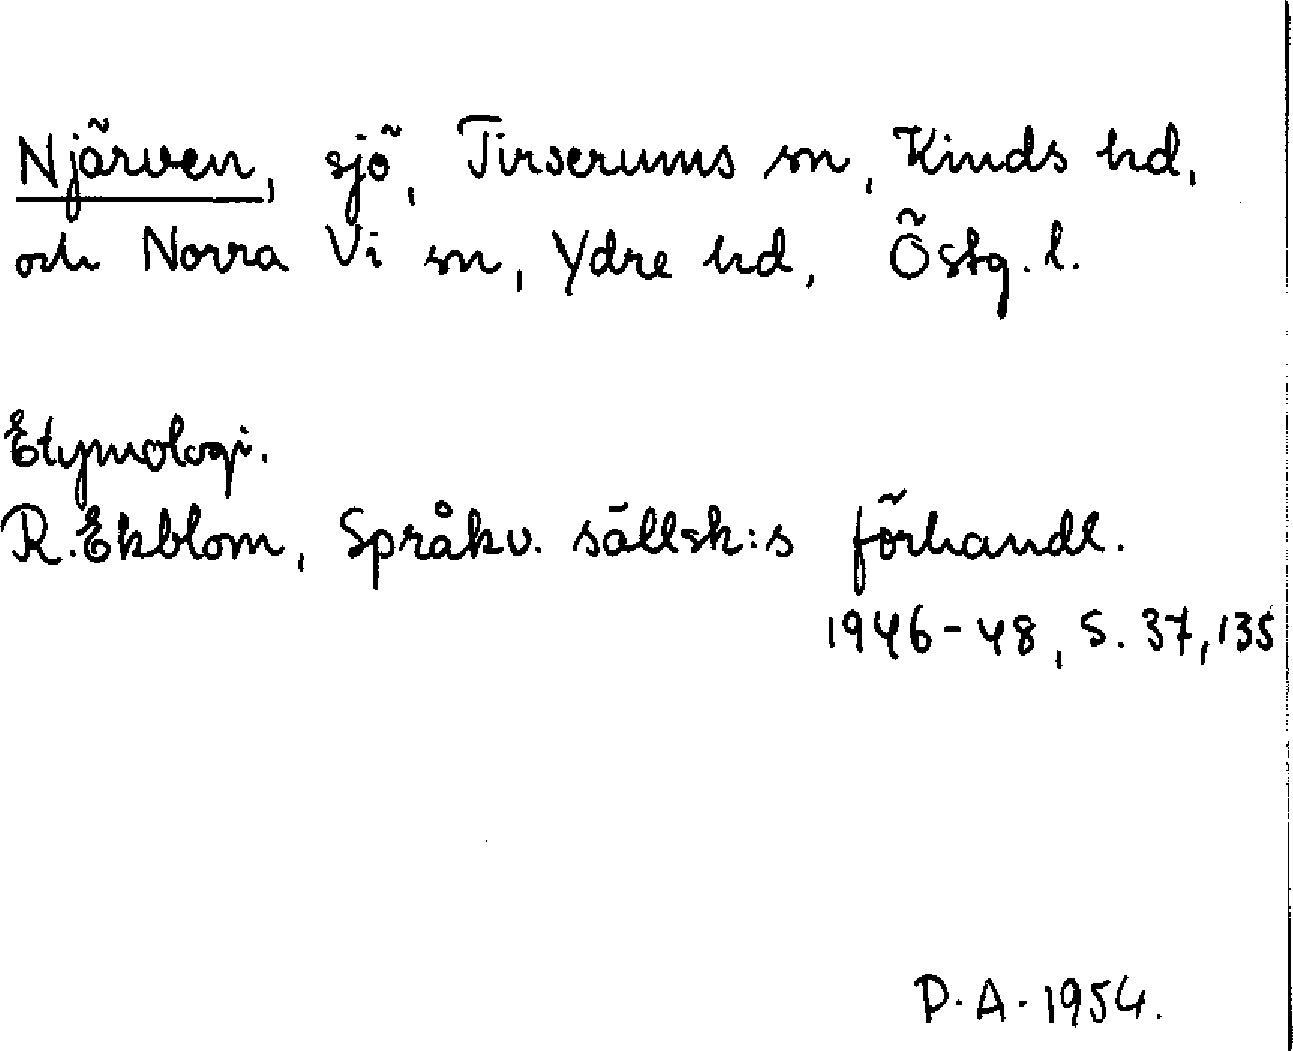 Njärven, sjö, Tirserums sn, Kinds hd,
och Norra Vi sn, Ydre hd, Östg. l.
Etymologi.
R. Ekblom, Språkv. sällsk:s förhandl.
1946-48, S. 37, 135
D. A. 1954.